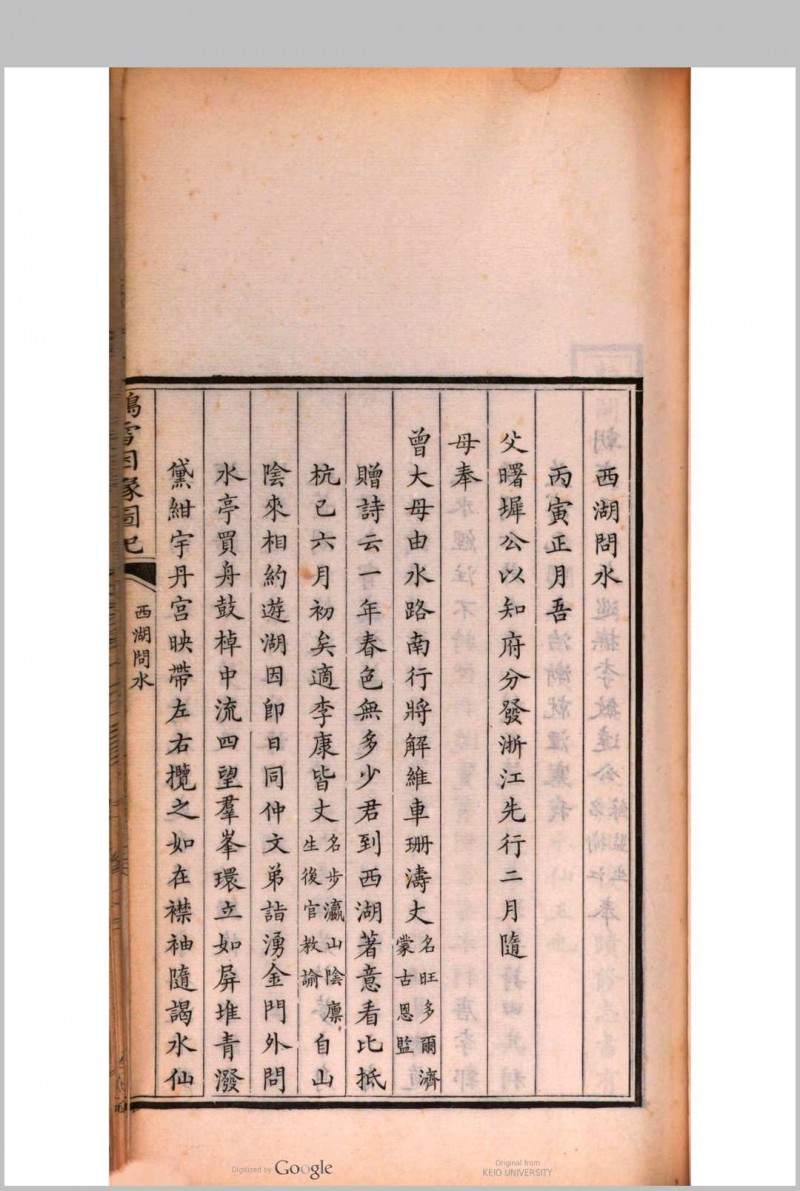 西湖問水
丙寅正月吾
父曙墀公以知府分發浙江先行二月隨
母奉
曾大母由水路南行將解維車珊濤丈名旺多爾濟蒙古恩監
贈詩云一年春色無多少君到西湖著意看比抵
杭已六月初矣適李康皆丈名步瀛山陰廩生後官教諭自山
陰來相約遊湖因卽日同仲文弟詣湧金門外問
水亭買舟鼓棹中流四望羣峯環立如屏堆青潑
黛紺宇丹宮映帶左右攬之如在襟袖隨謁水仙
鴻雪因緣圖記
西湖問水
Digitized by Google
Original from
KEIO UNIVERSITY